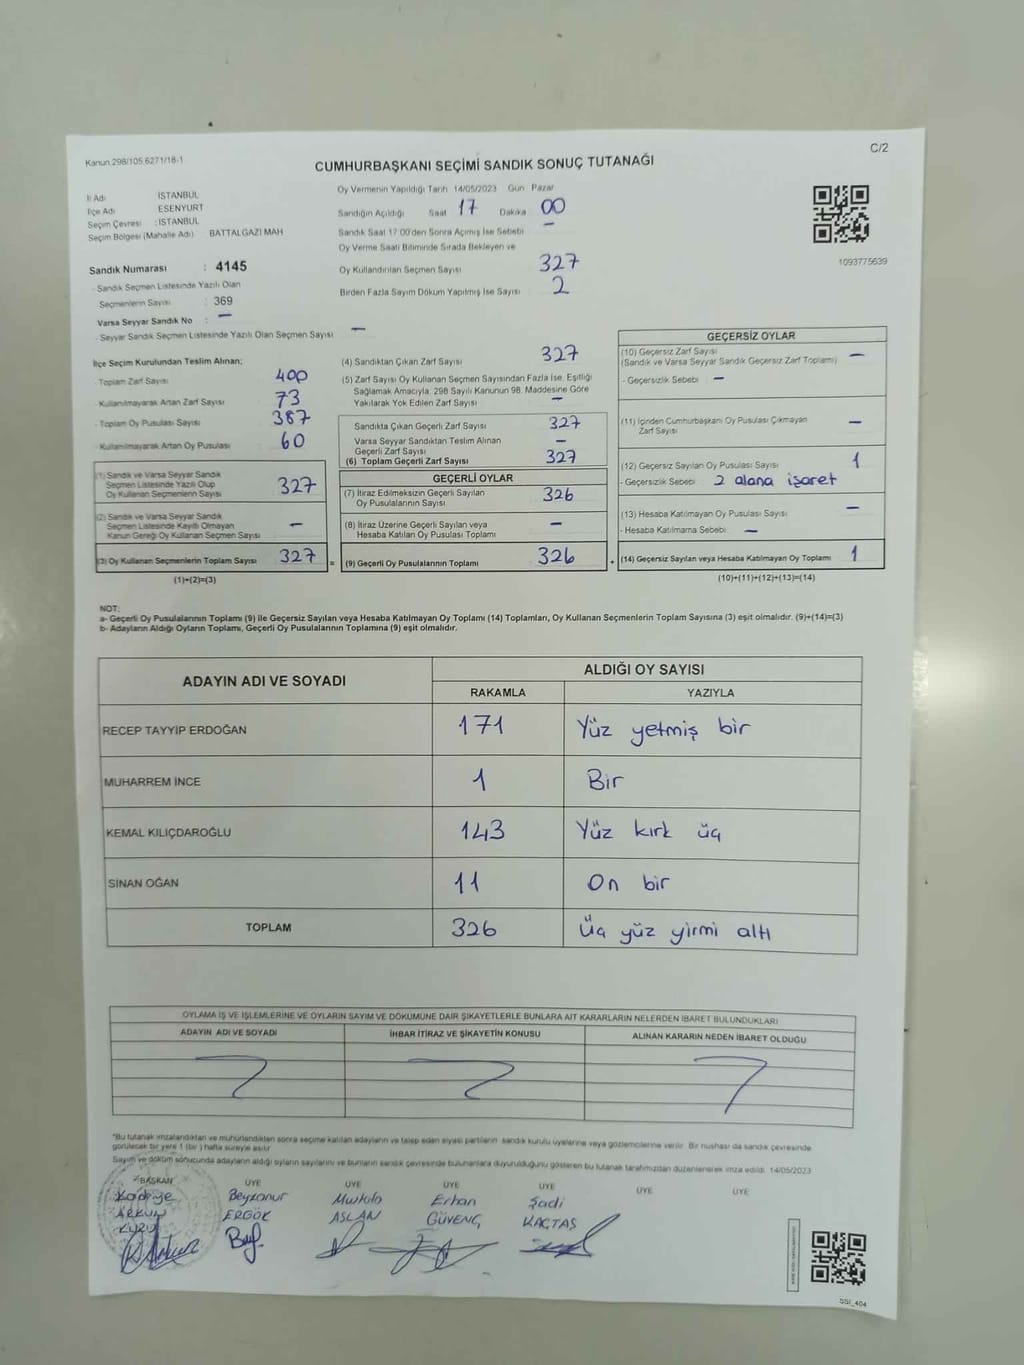 Kanun 298/105 6271/18-1
C/2
CUMHURBAŞKANI SEÇİMİ SANDIK SONUÇ TUTANAĞI
İl Adı İSTANBUL
İlçe Adı ESENYURT
Seçim Çevresi : İSTANBUL
Seçim Bölgesi (Mahalle Adı) BATTALGAZİ MAH
Sandık Numarası : 4145
- Sandık Seçmen Listesinde Yazılı Olan
Seçmenlerin Sayısı : 369
Varsa Seyyar Sandık No : —
- Seyyar Sandık Seçmen Listesinde Yazılı Olan Seçmen Sayısı —
Oy Vermenin Yapıldığı Tarih 14/05/2023 Gün Pazar
Sandığın Açıldığı Saat 17 Dakika 00
Sandık Saat 17:00'den Sonra Açılmış İse Sebebi —
Oy Verme Saati Bitiminde Sırada Bekleyen ve
Oy Kullandırılan Seçmen Sayısı 327
Birden Fazla Sayım Döküm Yapılmış İse Sayısı 2
1093775639
İlçe Seçim Kurulundan Teslim Alınan;
- Toplam Zarf Sayısı 400
- Kullanılmayarak Artan Zarf Sayısı 73
- Toplam Oy Pusulası Sayısı 387
- Kullanılmayarak Artan Oy Pusulası 60
(1) Sandık ve Varsa Seyyar Sandık
Seçmen Listesinde Yazılı Olup
Oy Kullanan Seçmenlerin Sayısı 327
(2) Sandık ve Varsa Seyyar Sandık
Seçmen Listesinde Kayıtlı Olmayan
Kanun Gereği Oy Kullanan Seçmen Sayısı —
(3) Oy Kullanan Seçmenlerin Toplam Sayısı 327 =
(1)+(2)=(3)
(4) Sandıktan Çıkan Zarf Sayısı 327
(5) Zarf Sayısı Oy Kullanan Seçmen Sayısından Fazla İse, Eşitliği
Sağlamak Amacıyla; 298 Sayılı Kanunun 98. Maddesine Göre
Yakılarak Yok Edilen Zarf Sayısı —
Sandıkta Çıkan Geçerli Zarf Sayısı 327
Varsa Seyyar Sandıktan Teslim Alınan
Geçerli Zarf Sayısı —
(6) Toplam Geçerli Zarf Sayısı 327
GEÇERLİ OYLAR
(7) İtiraz Edilmeksizin Geçerli Sayılan
Oy Pusulalarının Sayısı 326
(8) İtiraz Üzerine Geçerli Sayılan veya
Hesaba Katılan Oy Pusulası Toplamı —
(9) Geçerli Oy Pusulalarının Toplamı 326 +
GEÇERSİZ OYLAR
(10) Geçersiz Zarf Sayısı
(Sandık ve Varsa Seyyar Sandık Geçersiz Zarf Toplamı) —
- Geçersizlik Sebebi —
(11) İçinden Cumhurbaşkanı Oy Pusulası Çıkmayan
Zarf Sayısı —
(12) Geçersiz Sayılan Oy Pusulası Sayısı 1
- Geçersizlik Sebebi 2 alana işaret
(13) Hesaba Katılmayan Oy Pusulası Sayısı —
- Hesaba Katılmama Sebebi —
(14) Geçersiz Sayılan veya Hesaba Katılmayan Oy Toplamı 1
(10)+(11)+(12)+(13)=(14)
NOT:
a- Geçerli Oy Pusulalarının Toplamı (9) ile Geçersiz Sayılan veya Hesaba Katılmayan Oy Toplamı (14) Toplamları, Oy Kullanan Seçmenlerin Toplam Sayısına (3) eşit olmalıdır. (9)+(14)=(3)
b- Adayların Aldığı Oyların Toplamı, Geçerli Oy Pusulalarının Toplamına (9) eşit olmalıdır.
ADAYIN ADI VE SOYADI ALDIĞI OY SAYISI
RAKAMLA YAZIYLA
RECEP TAYYİP ERDOĞAN 171 Yüz yetmiş bir
MUHARREM İNCE 1 Bir
KEMAL KILIÇDAROĞLU 143 Yüz kırk üç
SİNAN OĞAN 11 On bir
TOPLAM 326 Üç yüz yirmi altı
OYLAMA İŞ VE İŞLEMLERİNE VE OYLARIN SAYIM VE DÖKÜMÜNE DAİR ŞİKAYETLERLE BUNLARA AİT KARARLARIN NELERDEN İBARET BULUNDUKLARI
ADAYIN ADI VE SOYADI İHBAR İTİRAZ VE ŞİKAYETİN KONUSU ALINAN KARARIN NEDEN İBARET OLDUĞU
*Bu tutanak imzalandıktan ve mühürlendikten sonra seçime katılan adayların ve talep eden siyasi partilerin sandık kurulu üyelerine veya gözlemcilerine verilir. Bir nüshası da sandık çevresinde
görülecek bir yere 1 (bir) hafta süreyle asılır
Sayım ve döküm sonucunda adayların aldığı oyların sayılarını ve bunların sandık çevresinde bulunanlara duyurulduğunu gösteren bu tutanak tarafımızdan düzenlenerek imza edildi. 14/05/2023
BAŞKAN ÜYE ÜYE ÜYE ÜYE ÜYE ÜYE
Kadriye Beyzanur Erhan Şadi
ERGÖK ASLAN GÜVENÇ
SSİ_404